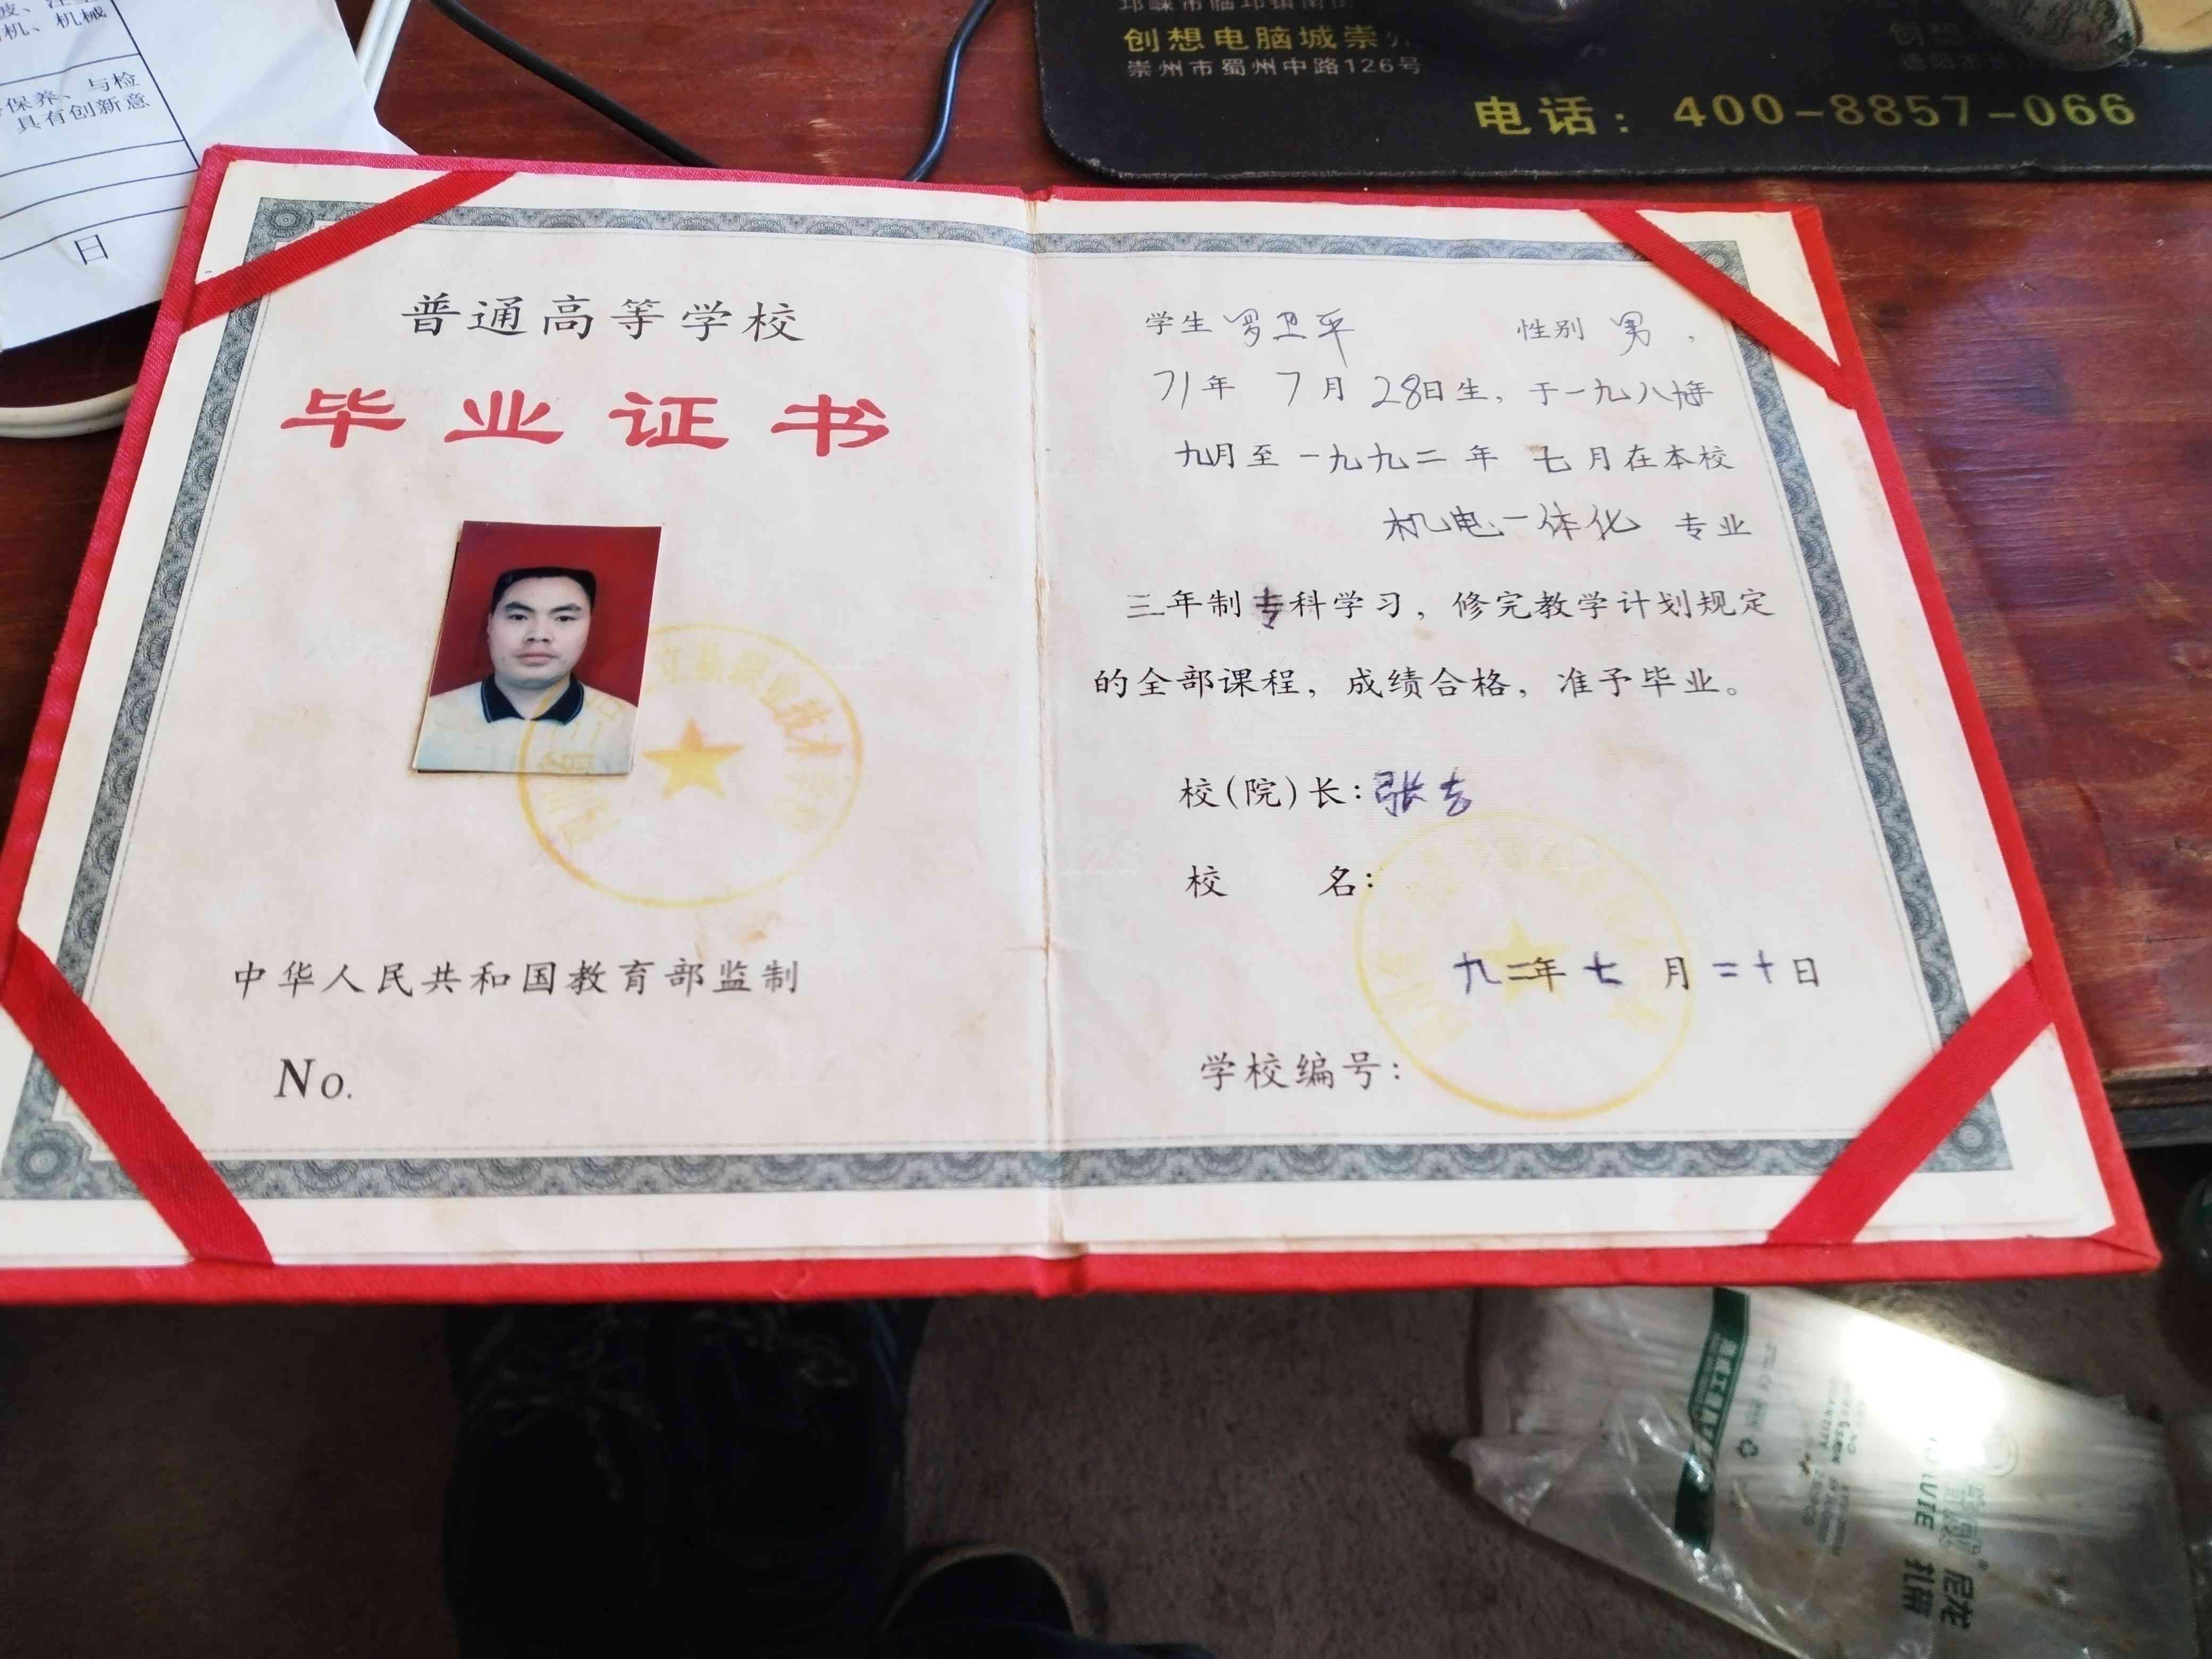 机、机械
保养、与检
具有创新意
日
创想电脑城崇州
崇州市蜀州中路126号
电话：400-8857-066
普通高等学校
毕业证书
中华人民共和国教育部监制
No.
学生 罗卫平 性别 男，
71年 7月 28日生，于一九八九年
九月至一九九二年 七月在本校
机电一体化 专业
三年制专科学习，修完教学计划规定
的全部课程，成绩合格，准予毕业。
校(院)长：张
校 名：
九二年 七 月 二十日
学校编号：
尼龙
扎带